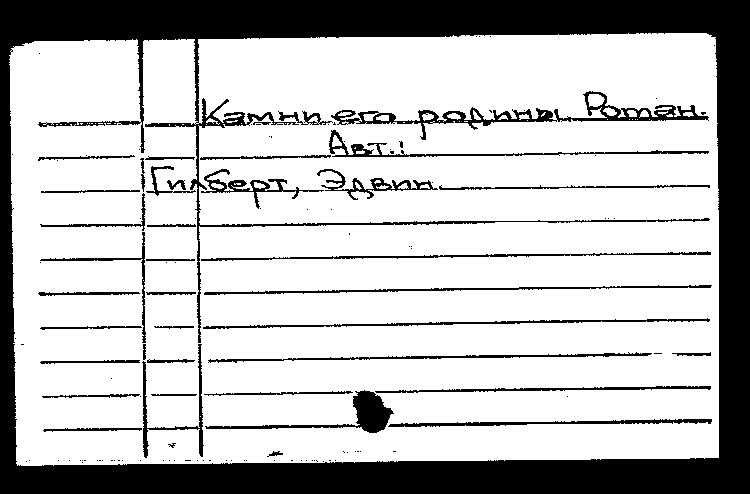 Камни его родины. Роман.
Авт.:
Гилберт, Эдвин.